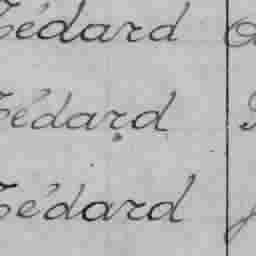 Bédard
Bédard
Bédard